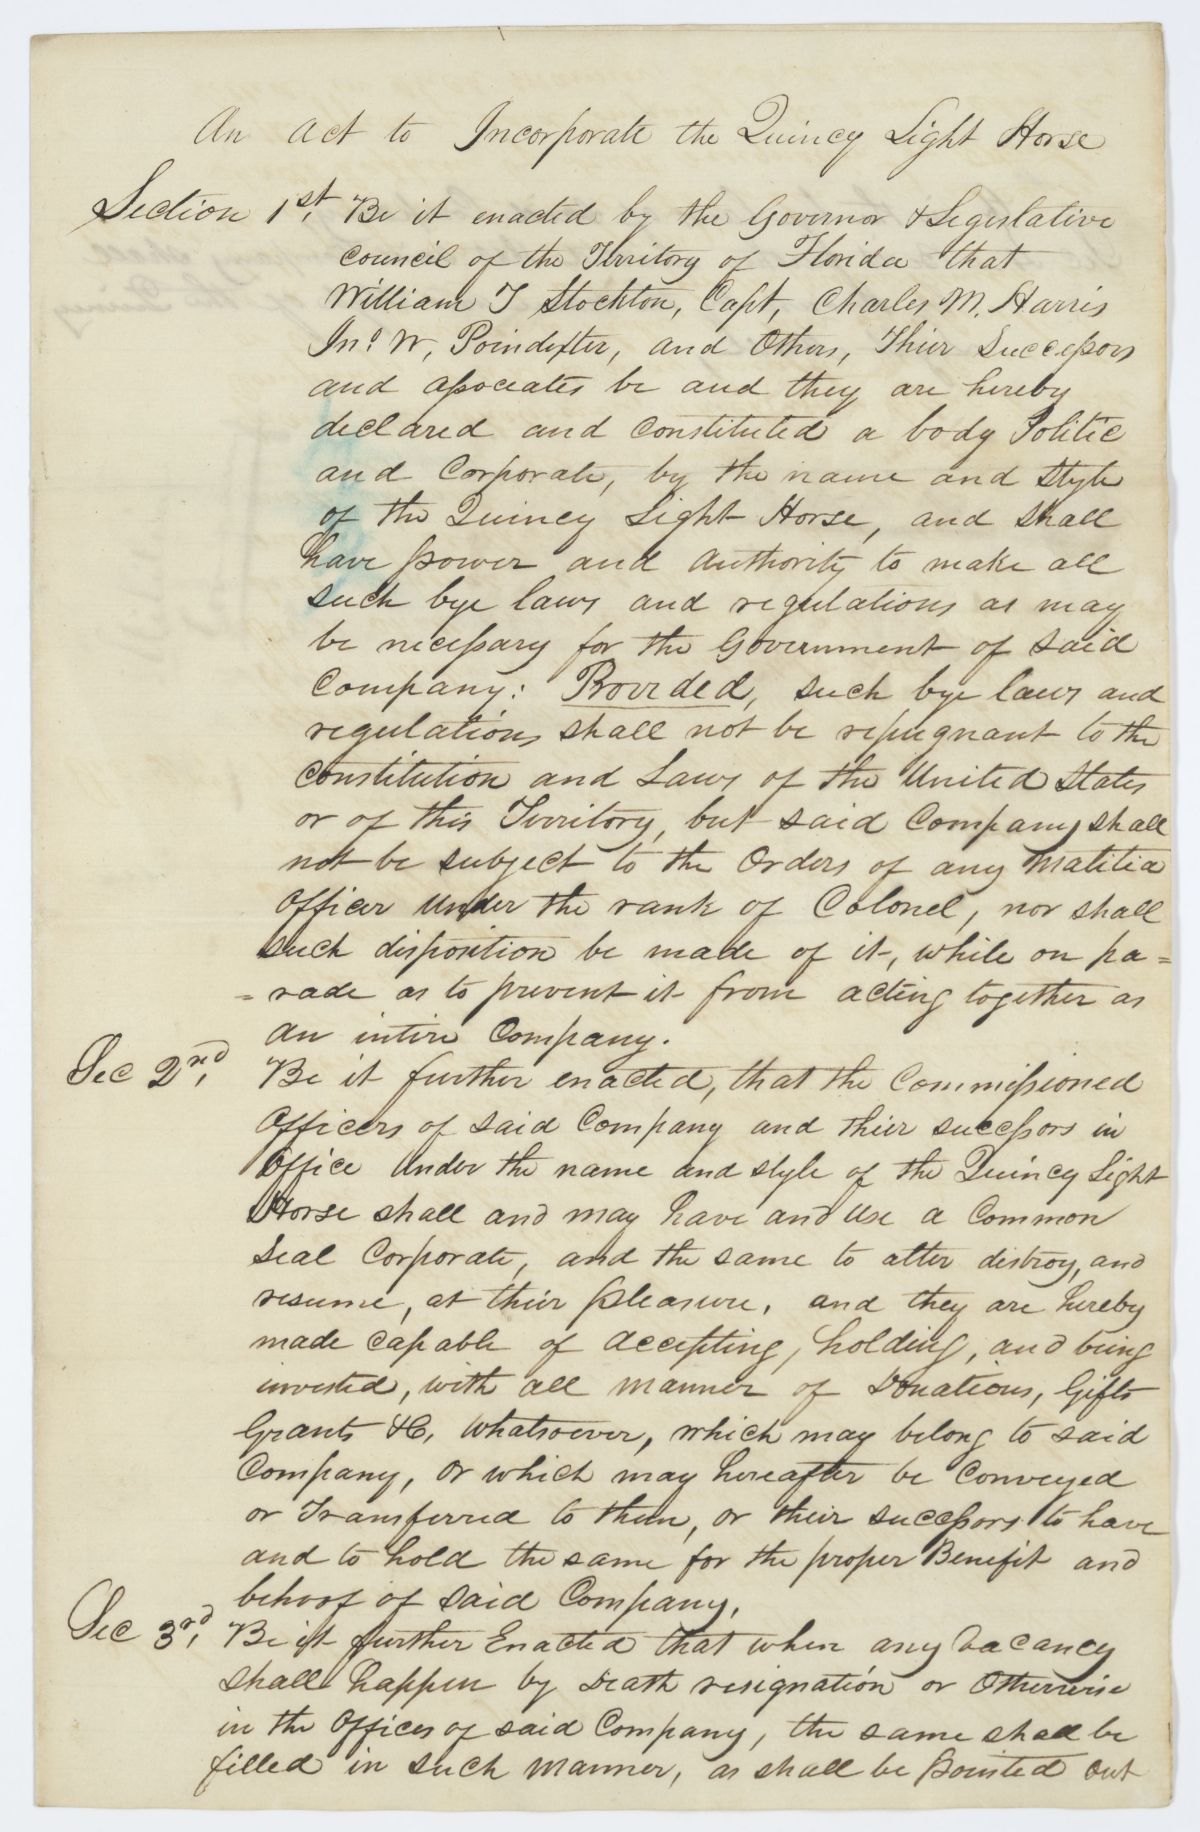 An Act to Incorporate the Quincy Light Horse
Section 1st, Be it enacted by the Governor & Legislative
Council of the Territory of Florida that
William T Stockton, Capt, Charles M. Harris
Jno. W, Poindexter, and Others, Thier Successors
and associates be and they are hereby
declared and constituted a body Politic
and Corporate, by the name and Style
of the Quincy Light Horse, and shall
have power and authority to make all
such bye laws and regulations as may
be necessary for the Government of said
Company: Provided, such bye laws and
regulations shall not be repugnant to the
Constitution and Laws of the United States
or of this Territory, but said Company shall
not be subject to the Orders of any Malitia
Officer under the rank of Colonel, nor shall
such disposition be made of it, while on pa=
=rade as to prevent it from acting together as
an intire Company.
Sec 2nd, Be it further enacted, that the Commissioned
Officers of said Company and thier successors in
Office under the name and style of the Quincy Light
Horse shall and may have and use a Common
Seal Corporate, and the same to alter distroy, and
resume, at thier pleasure, and they are hereby
made capable of accepting, holding, and being
invested, with all manner of Donations, Gifts
Grants &C, whatsoever, which may belong to said
Company, or which may hereafter be Conveyed
or Transferred to them, or thier successors to have
and to hold the same for the proper Benefit and
behoof of said Company,
Sec 3rd, Be it further Enacted that when any vacancy
shall happen by Death resignation or Otherwise
in the Offices of said Company, the same shall be
filled in such manner, as shall be pointed out